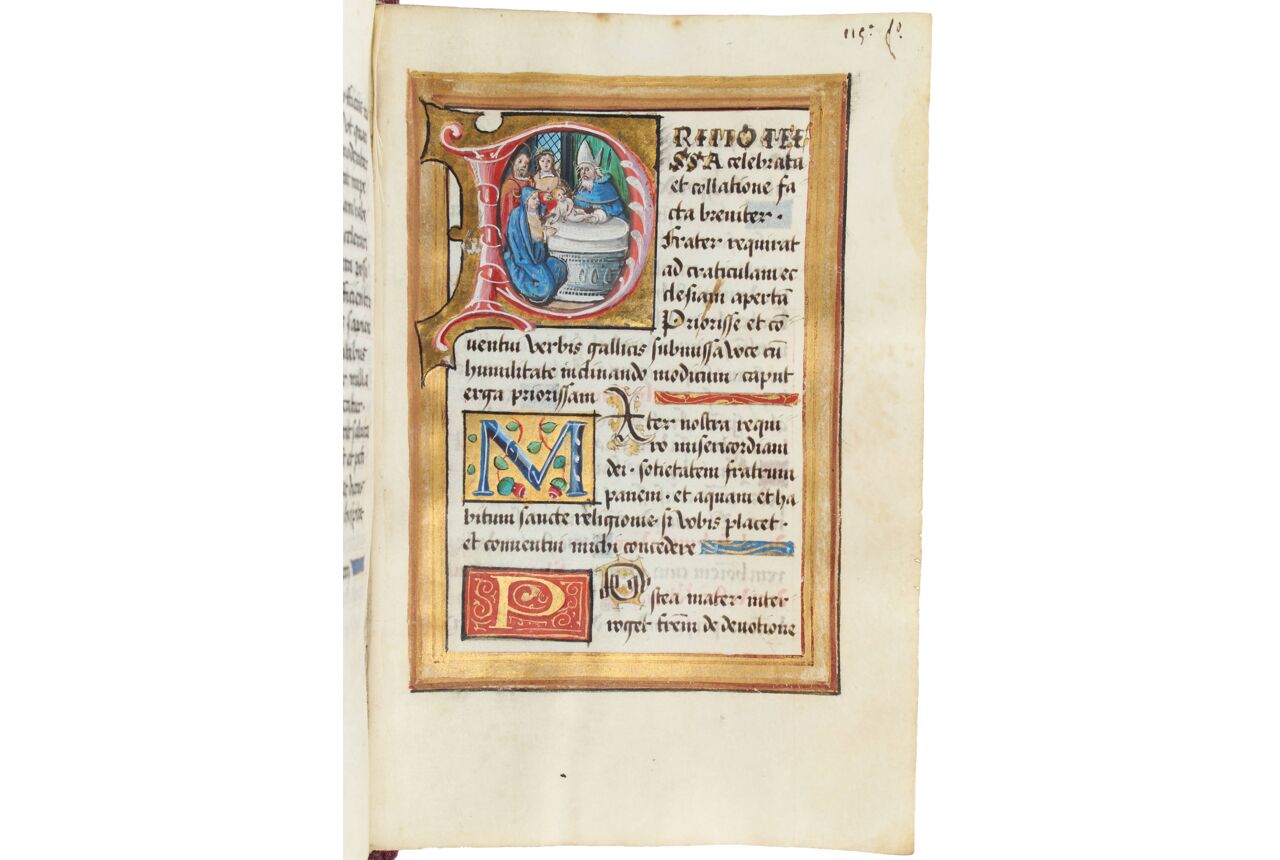 115ª fo
PRIMO MI
SSA celebrata
et collatione fa
cta breuiter ·
Frater requirat
ad craticulam ec
clesiam apertã
Priorisse et cõ
uentui verbis gallicis submissa voce cũ
humilitate inclinando modicum caput
erga priorissam
MAter nostra requi
ro misericordiam
dei · sotietatem fratrum
panem · et aquam et ha
bitum sancte religionis si vobis placet ·
et conuentui michi concedere
POstea mater inter
roget frẽm de deuotione